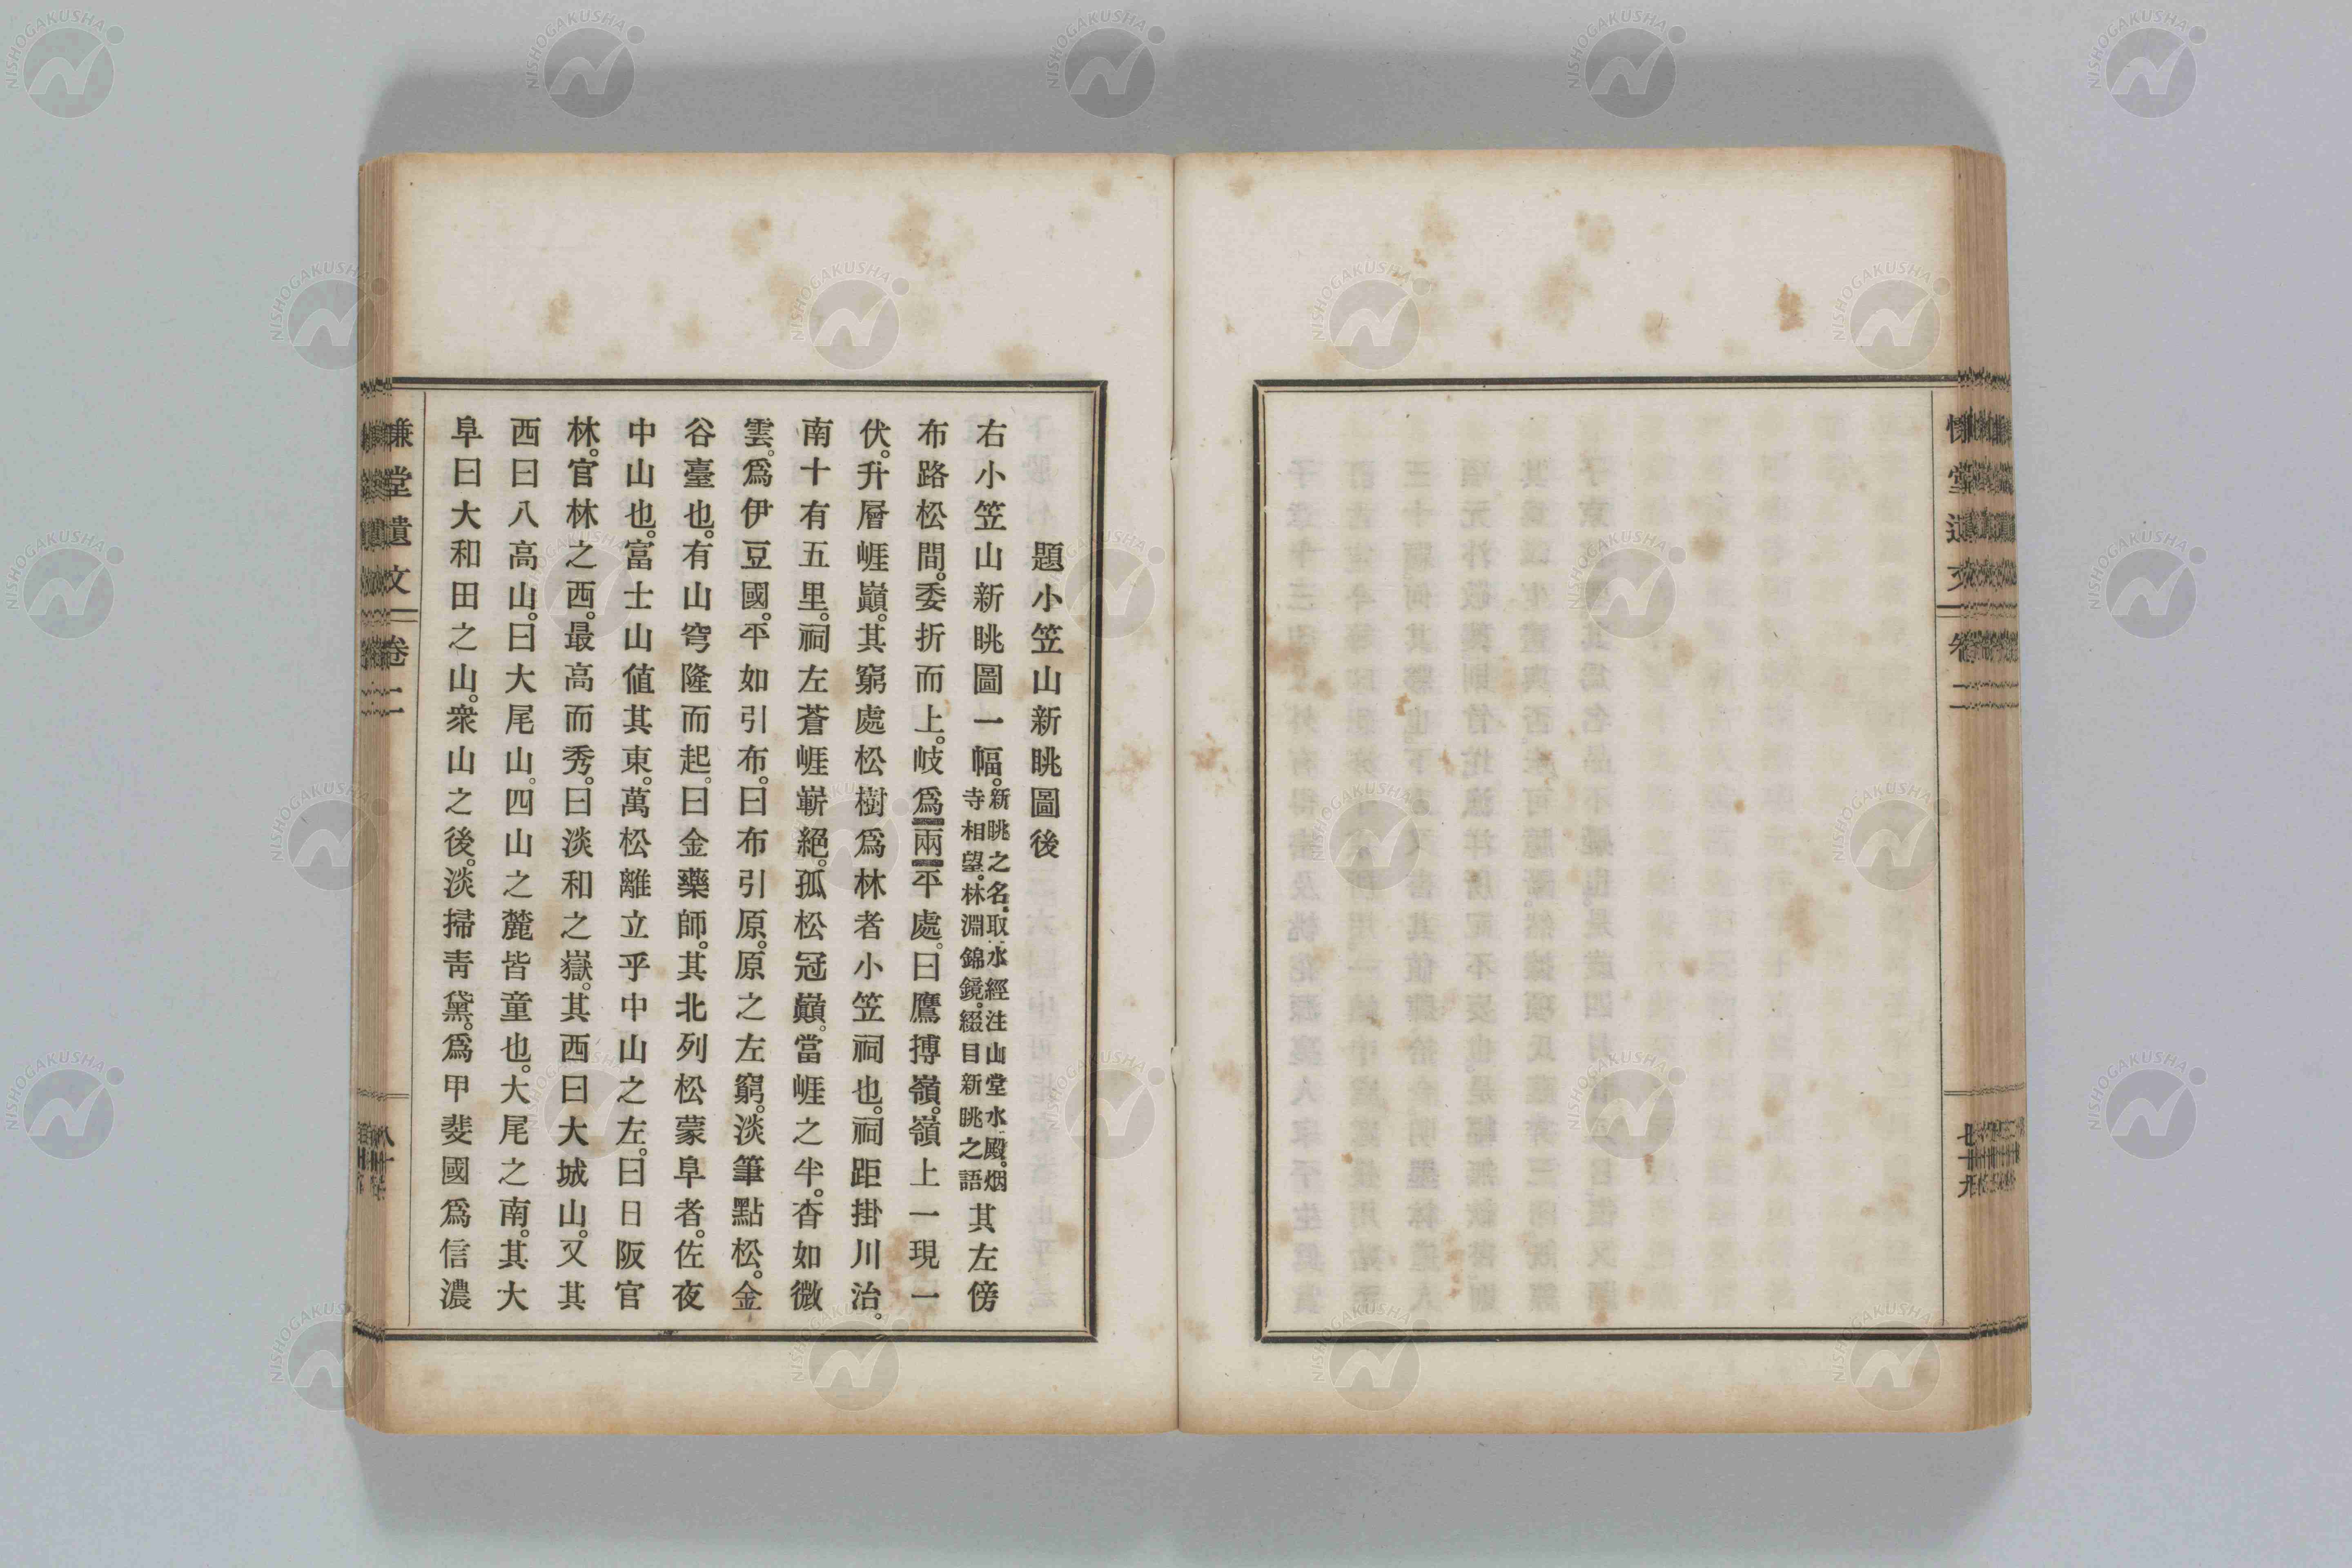 慊堂遺文 卷二 七十九
題小笠山新眺圖後
右小笠山新眺圖一幅。新眺之名。取水經注山堂水殿。烟寺相望。林淵錦鏡。綴目新眺之語其左傍
布路松間。委折而上。岐爲兩平處。曰鷹搏嶺。嶺上一現一
伏。升層崕巓。其窮處松樹爲林者小笠祠也。祠距掛川治。
南十有五里。祠左蒼崕嶄絕。孤松冠巓。當崕之半。杳如微
雲。爲伊豆國。平如引布。曰布引原。原之左窮。淡筆點松。金
谷臺也。有山穹隆而起。曰金藥師。其北列松蒙阜者。佐夜
中山也。富士山値其東。萬松離立乎中山之左。曰日阪官
林。官林之西。最高而秀。曰淡和之嶽。其西曰大城山。又其
西曰八高山。曰大尾山。四山之麓皆童也。大尾之南。其大
阜曰大和田之山。衆山之後。淡掃靑黛。爲甲斐國爲信濃
慊堂遺文 卷二 八十
NISHOGAKUSHA